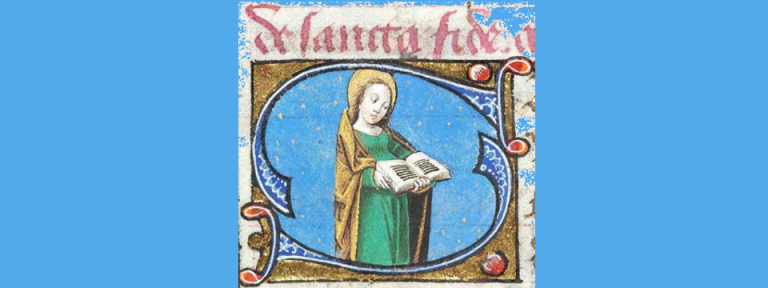 de sancta fide. a